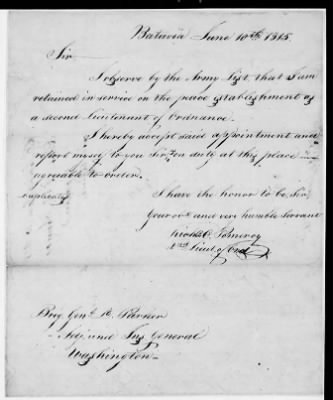 Batavia June 19th 1815.
Sir
I observe by the Army List that I am
retained in service on the peace establishment as
a second Lieutenant of Ordnance.
I hereby accept said appointment and
report myself to you Sir, on duty at this place
agreeable to orders.
duplicate
I have the honor to be, Sir
Your and very humble servant
Pomeroy
2nd Lieut. of Ord
Brig. Genl. D. Parker
Adj. and Ins. General
Washington